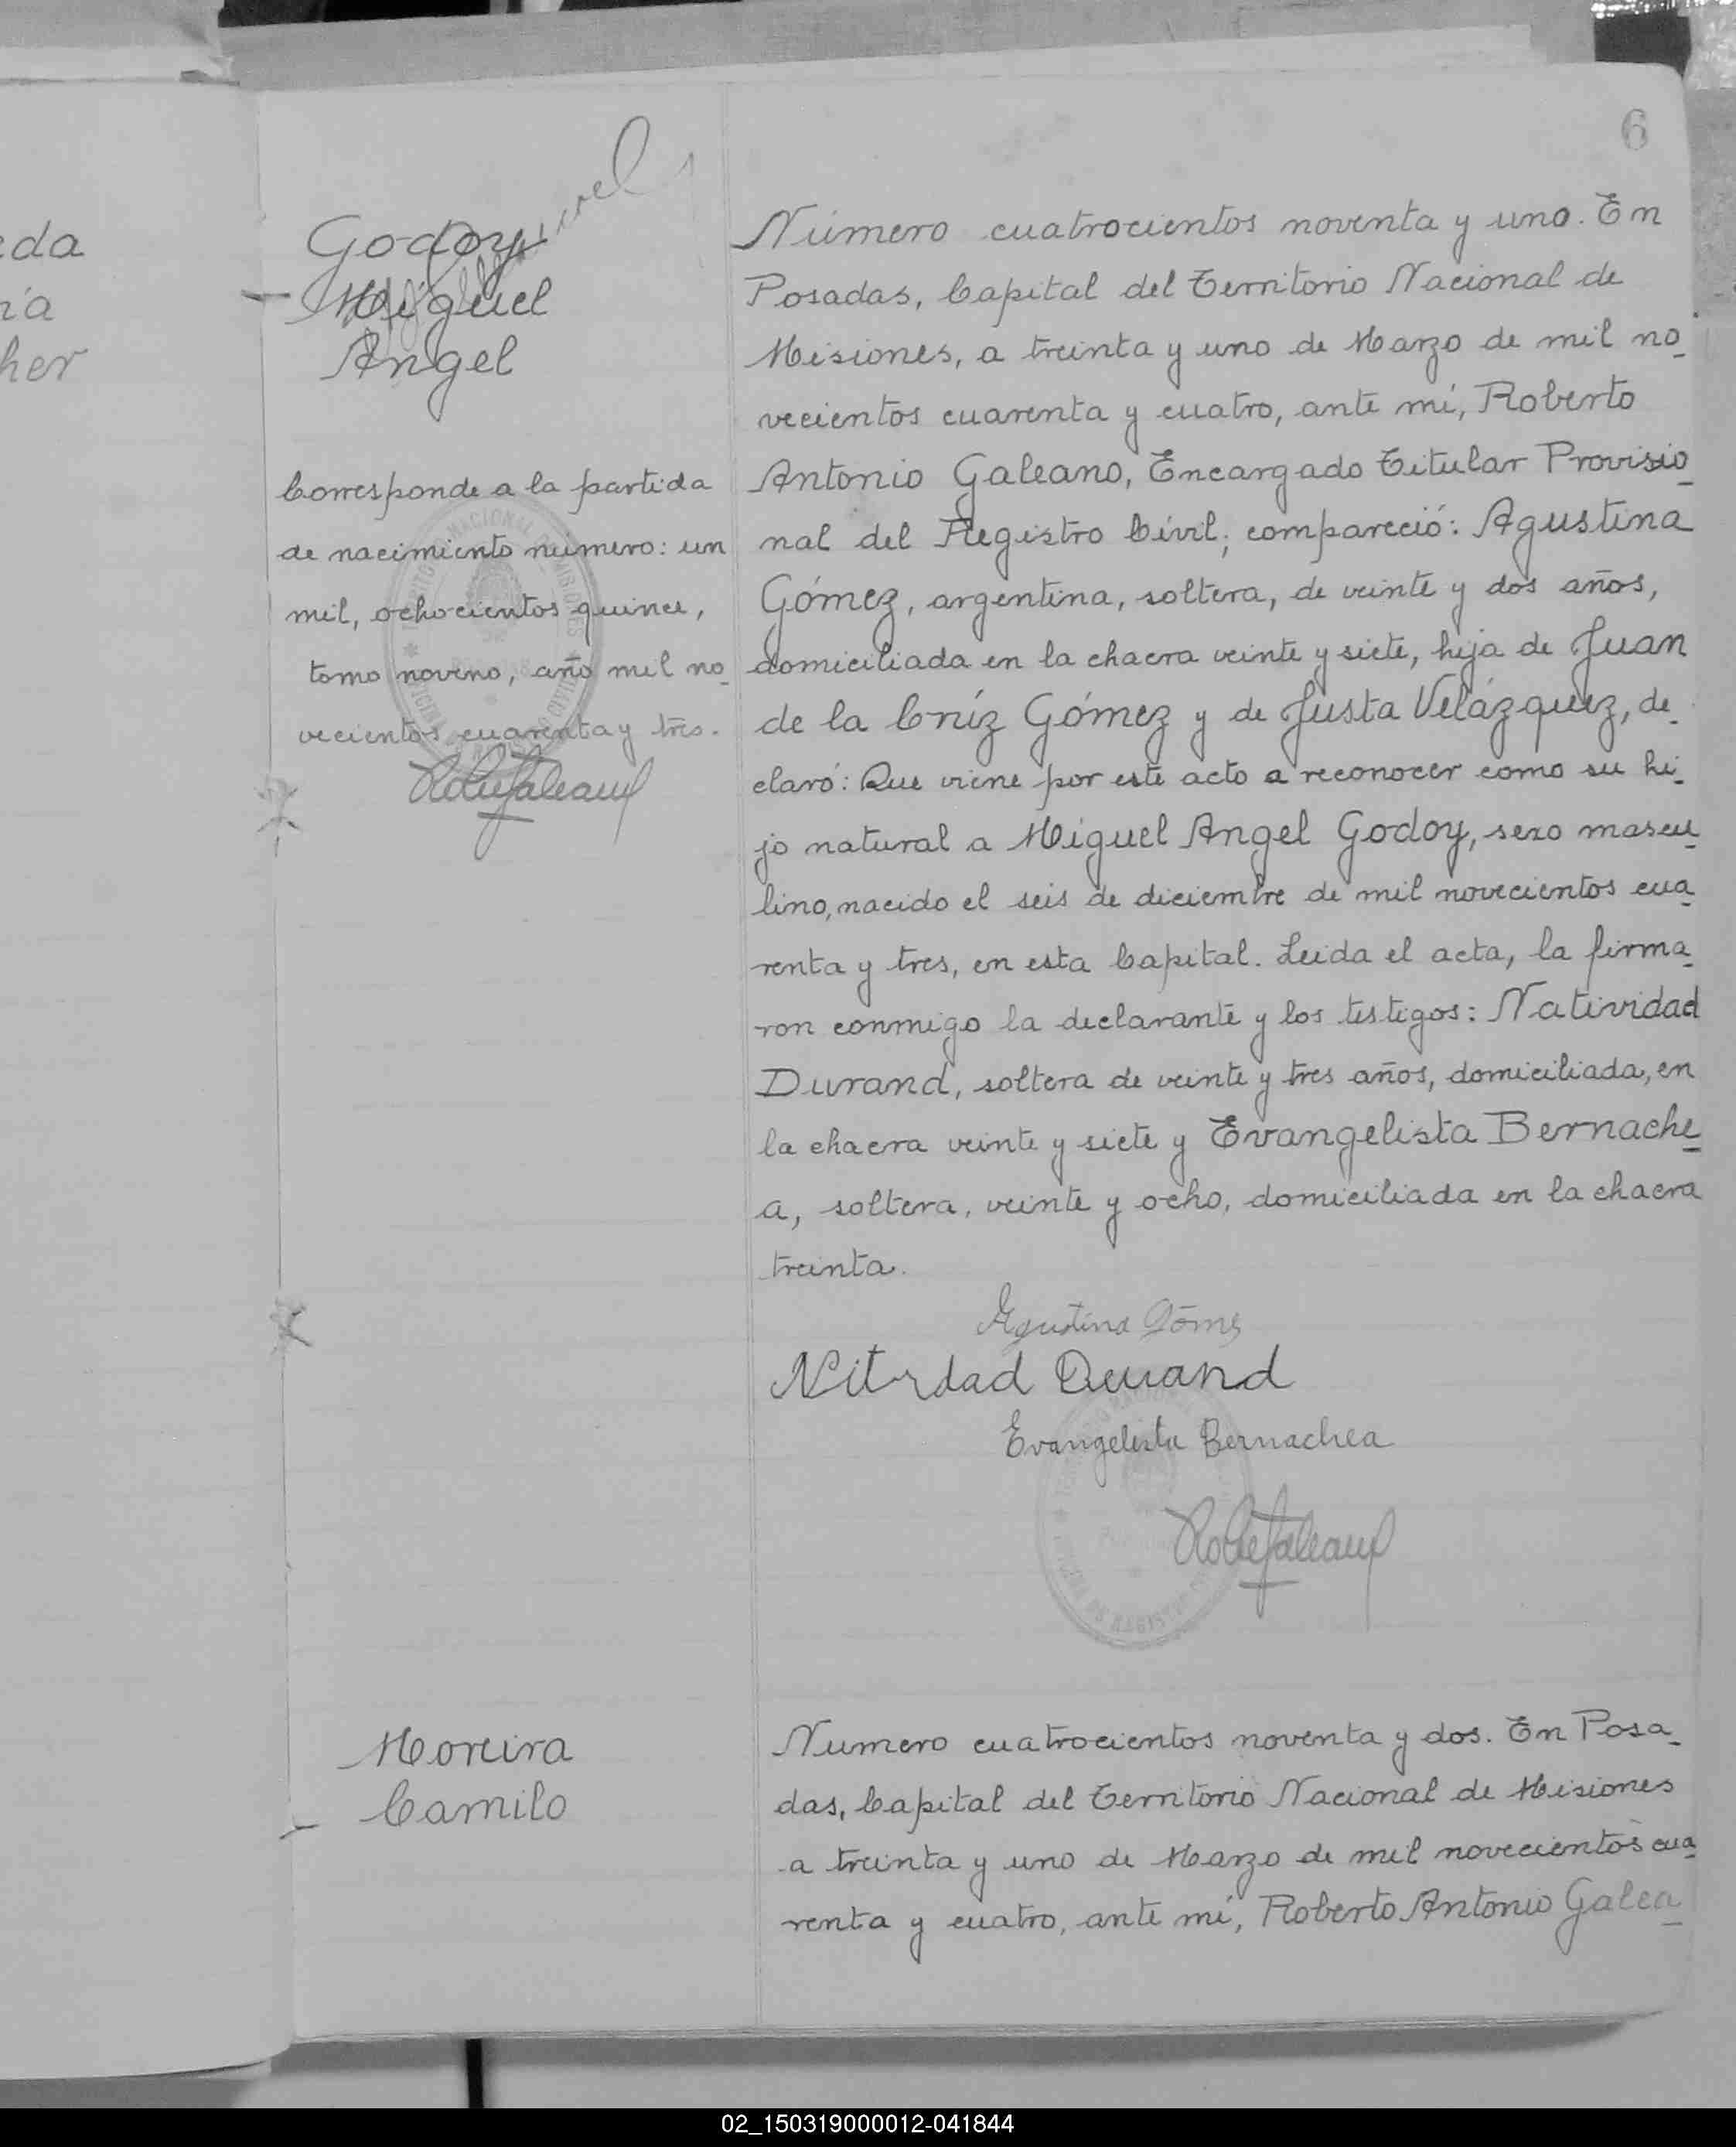 eda
ría
her
6
Godoy
Miguel
Angel
Corresponde a la partida
de nacimiento numero: un
mil, ochocientos quince,
tomo noveno, año mil no_
vecientos cuarenta y tres.
Número cuatrocientos noventa y uno. En
Posadas, Capital del Territorio Nacional de
Misiones, a treinta y uno de Marzo de mil no_
vecientos cuarenta y cuatro, ante mí, Roberto
Antonio Galeano, Encargado Titular Provisio_
nal del Registro Civil; compareció: Agustina
Gómez, argentina, soltera, de veinte y dos años,
domiciliada en la chacra veinte y siete, hija de Juan
de la Crúz Gómez y de Justa Velázquez, de_
claró: Que viene por este acto a reconocer como su hi_
jo natural a Miguel Angel Godoy, sexo mascu_
lino, nacido el seis de diciembre de mil novecientos cua_
renta y tres, en esta Capital. Leida el acta, la firma_
ron conmigo la declarante y los testigos: Natividad
Durand, soltera de veinte y tres años, domiciliada, en
la chacra veinte y siete y Evangelista Bernache_
a, soltera, veinte y ocho, domiciliada en la chacra
treinta.
Agustina Gómez
Durand
Evangelista Bernachea
Moreira
Camilo
Numero cuatrocientos noventa y dos. En Posa_
das, Capital del Territorio Nacional de Misiones
a treinta y uno de Marzo de mil novecientos cua_
renta y cuatro, ante mí, Roberto Antonio Galea_
02_150319000012-041844